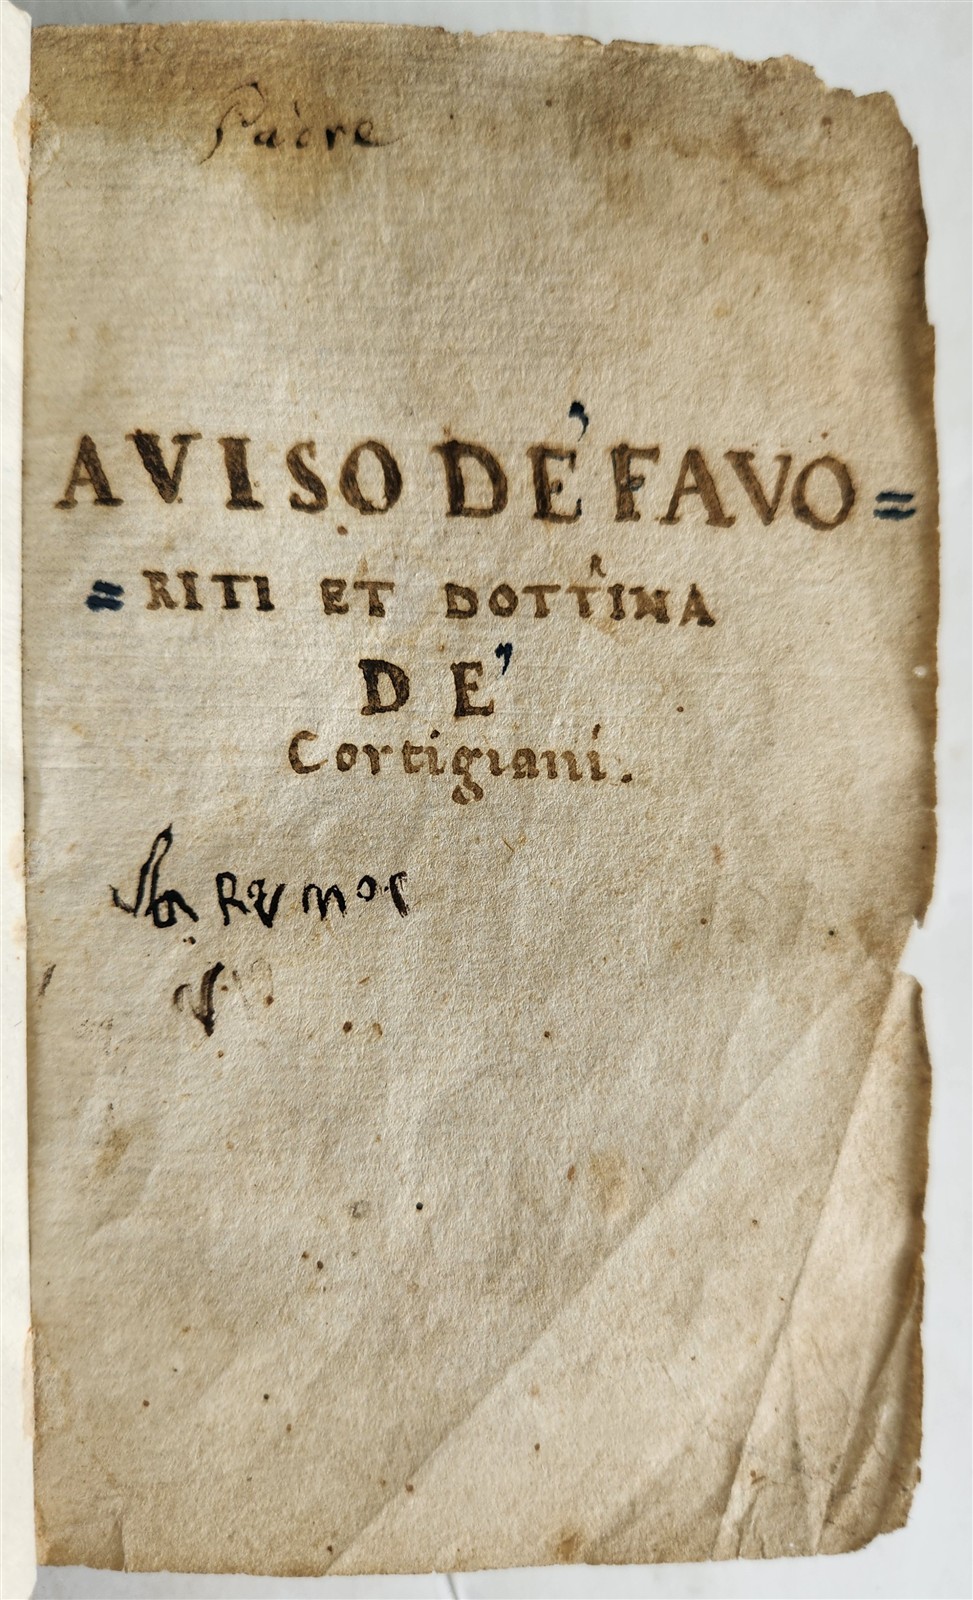 Padre
AVISO DE' FAVO=
=RITI ET DOTTrINA
DE'
Cortigiani.